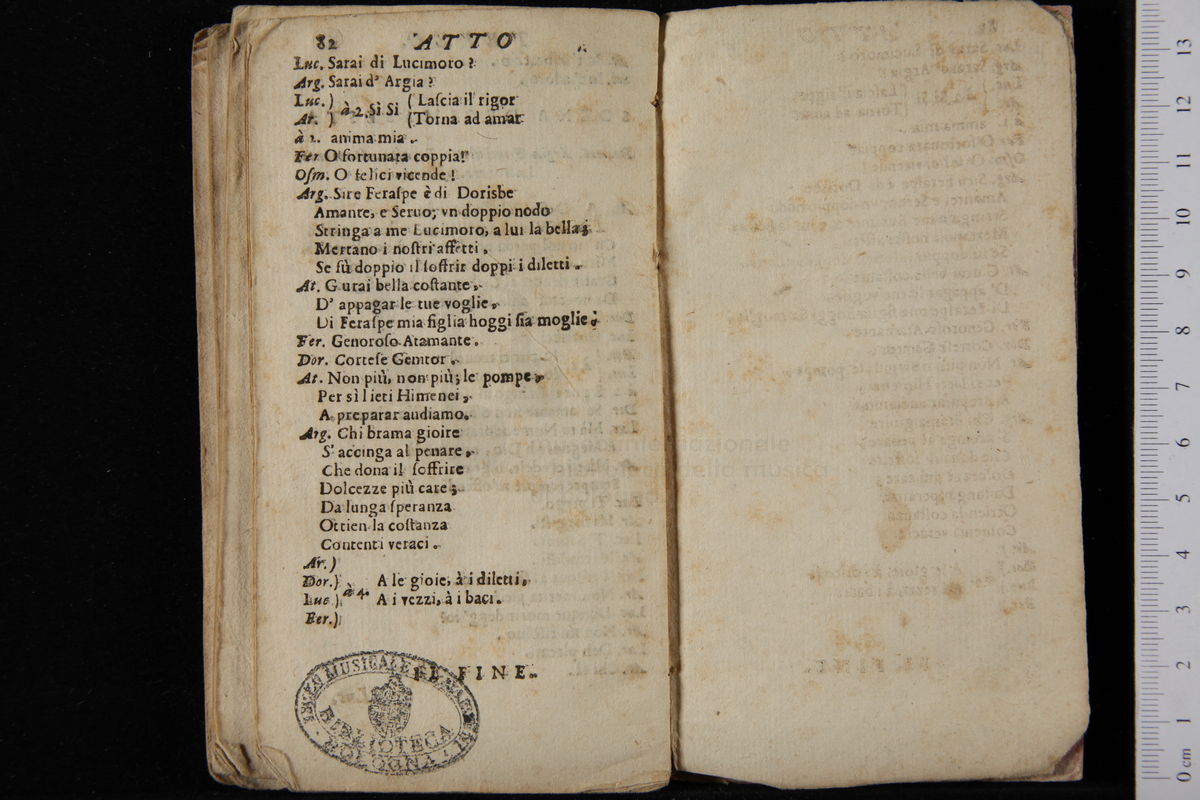 82 ATTO
Luc. Sarai di Lucimoro?
Arg. Sarai d' Argia?
Luc.) à 2. Sì Sì (Laſcia il rigor
Ar. ) (Torna ad amar
à 2. anima mia.
Fer. O fortunata coppia!
Oſm. O felici vicende!
Arg. Sire Feraſpe è di Dorisbe
Amante, e Seruo; vn doppio nodo
Stringa a me Lucimoro, a lui la bella;
Mertano i noſtri affetti,
Se fù doppio il ſoffrir doppi i diletti.
At. Giurai bella coſtante,
D' appagar le tue voglie,
Di Feraſpe mia figlia hoggi ſia moglie;
Fer. Genoroſo Atamante.
Dor. Corteſe Genitor.
At. Non più, non più; le pompe,
Per sì lieti Himenei,
A preparar andiamo.
Arg. Chi brama gioire
S' accinga al penare,
Che dona il ſoffrire
Dolcezze più care;
Da lunga ſperanza
Ottien la coſtanza
Contenti veraci.
Ar.)
Dor.) à 4. A le gioie, à i diletti,
Luc.) A i vezzi, à i baci.
Fer.)
IL FINE.
LICEO MUSICALE
BIBLIOTECA
BOLOGNA
internazionale
della musica
0 cm 1 2 3 4 5 6 7 8 9 10 11 12 13